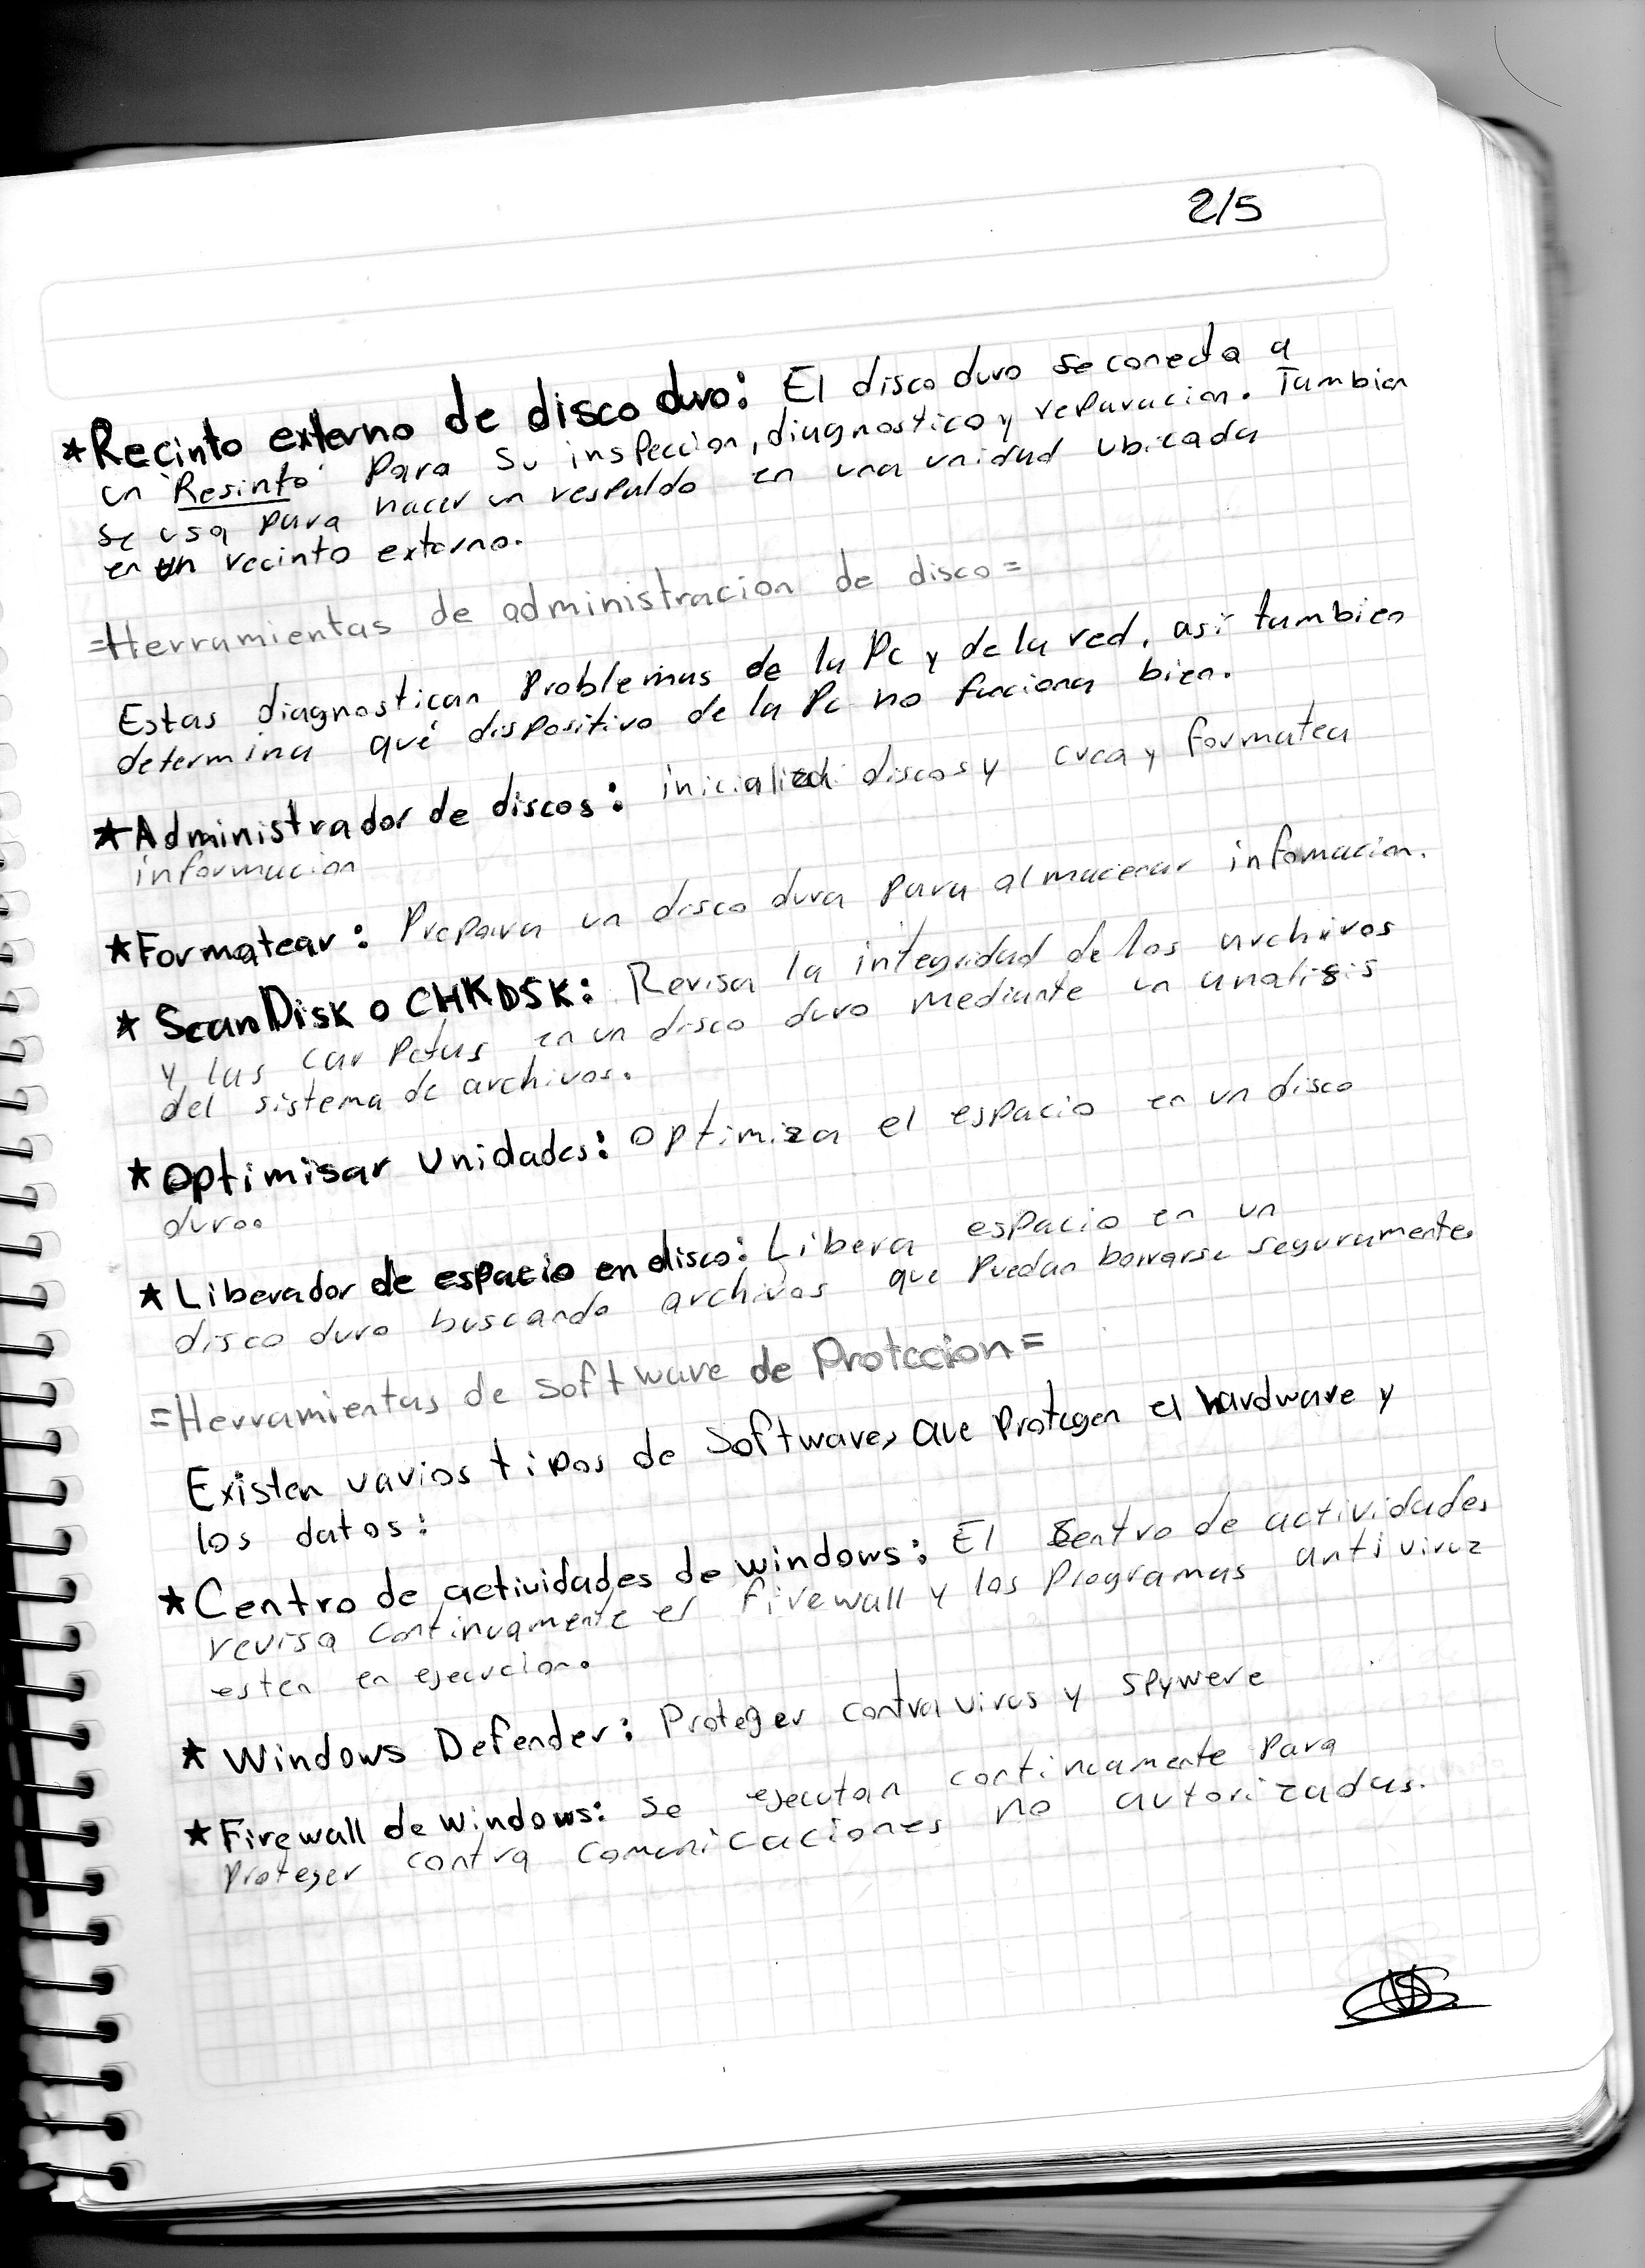 2/5
★Recinto externo de disco duro: El disco duro se conecta a
un "Resinto" para su inspeccion, diagnostico y reparacion. Tambien
se usa para hacer un respaldo en una unidad ubicada
en un recinto externo.
=Herramientas de administracion de disco=
Estas diagnostican Problemas de la Pc y de la red, asi tambien
determina qué dispositivo de la Pc no funciona bien.
★Administrador de discos: inicializa discos y crea y formatea
informacion
★Formatear: Prepara un disco duro para almacenar infomacion.
★ ScanDisk o CHKDSK: Revisa la integridad de los archivos
y las carpetas en un disco duro mediante un analisis
del sistema de archivos.
★Optimisar Unidades: Optimiza el espacio en un disco
duro.
★ Liberador de espacio en disco: Libera espacio en un
disco duro buscando archivos que puedan borrarse seguramente.
=Herramientas de Software de Proteccion=
Existen varios tipos de Software, que Protegen el hardware y
los datos:
★Centro de actividades de windows: El Sentro de actividades
revisa continuamente el firewall y los Programas antiviruz
esten en ejecucion.
★ Windows Defender: Proteger contra virus y Spywere
★Firewall de Windows: Se ejecutan continuamente Para
Proteger contra comunicaciones no autorizadas.